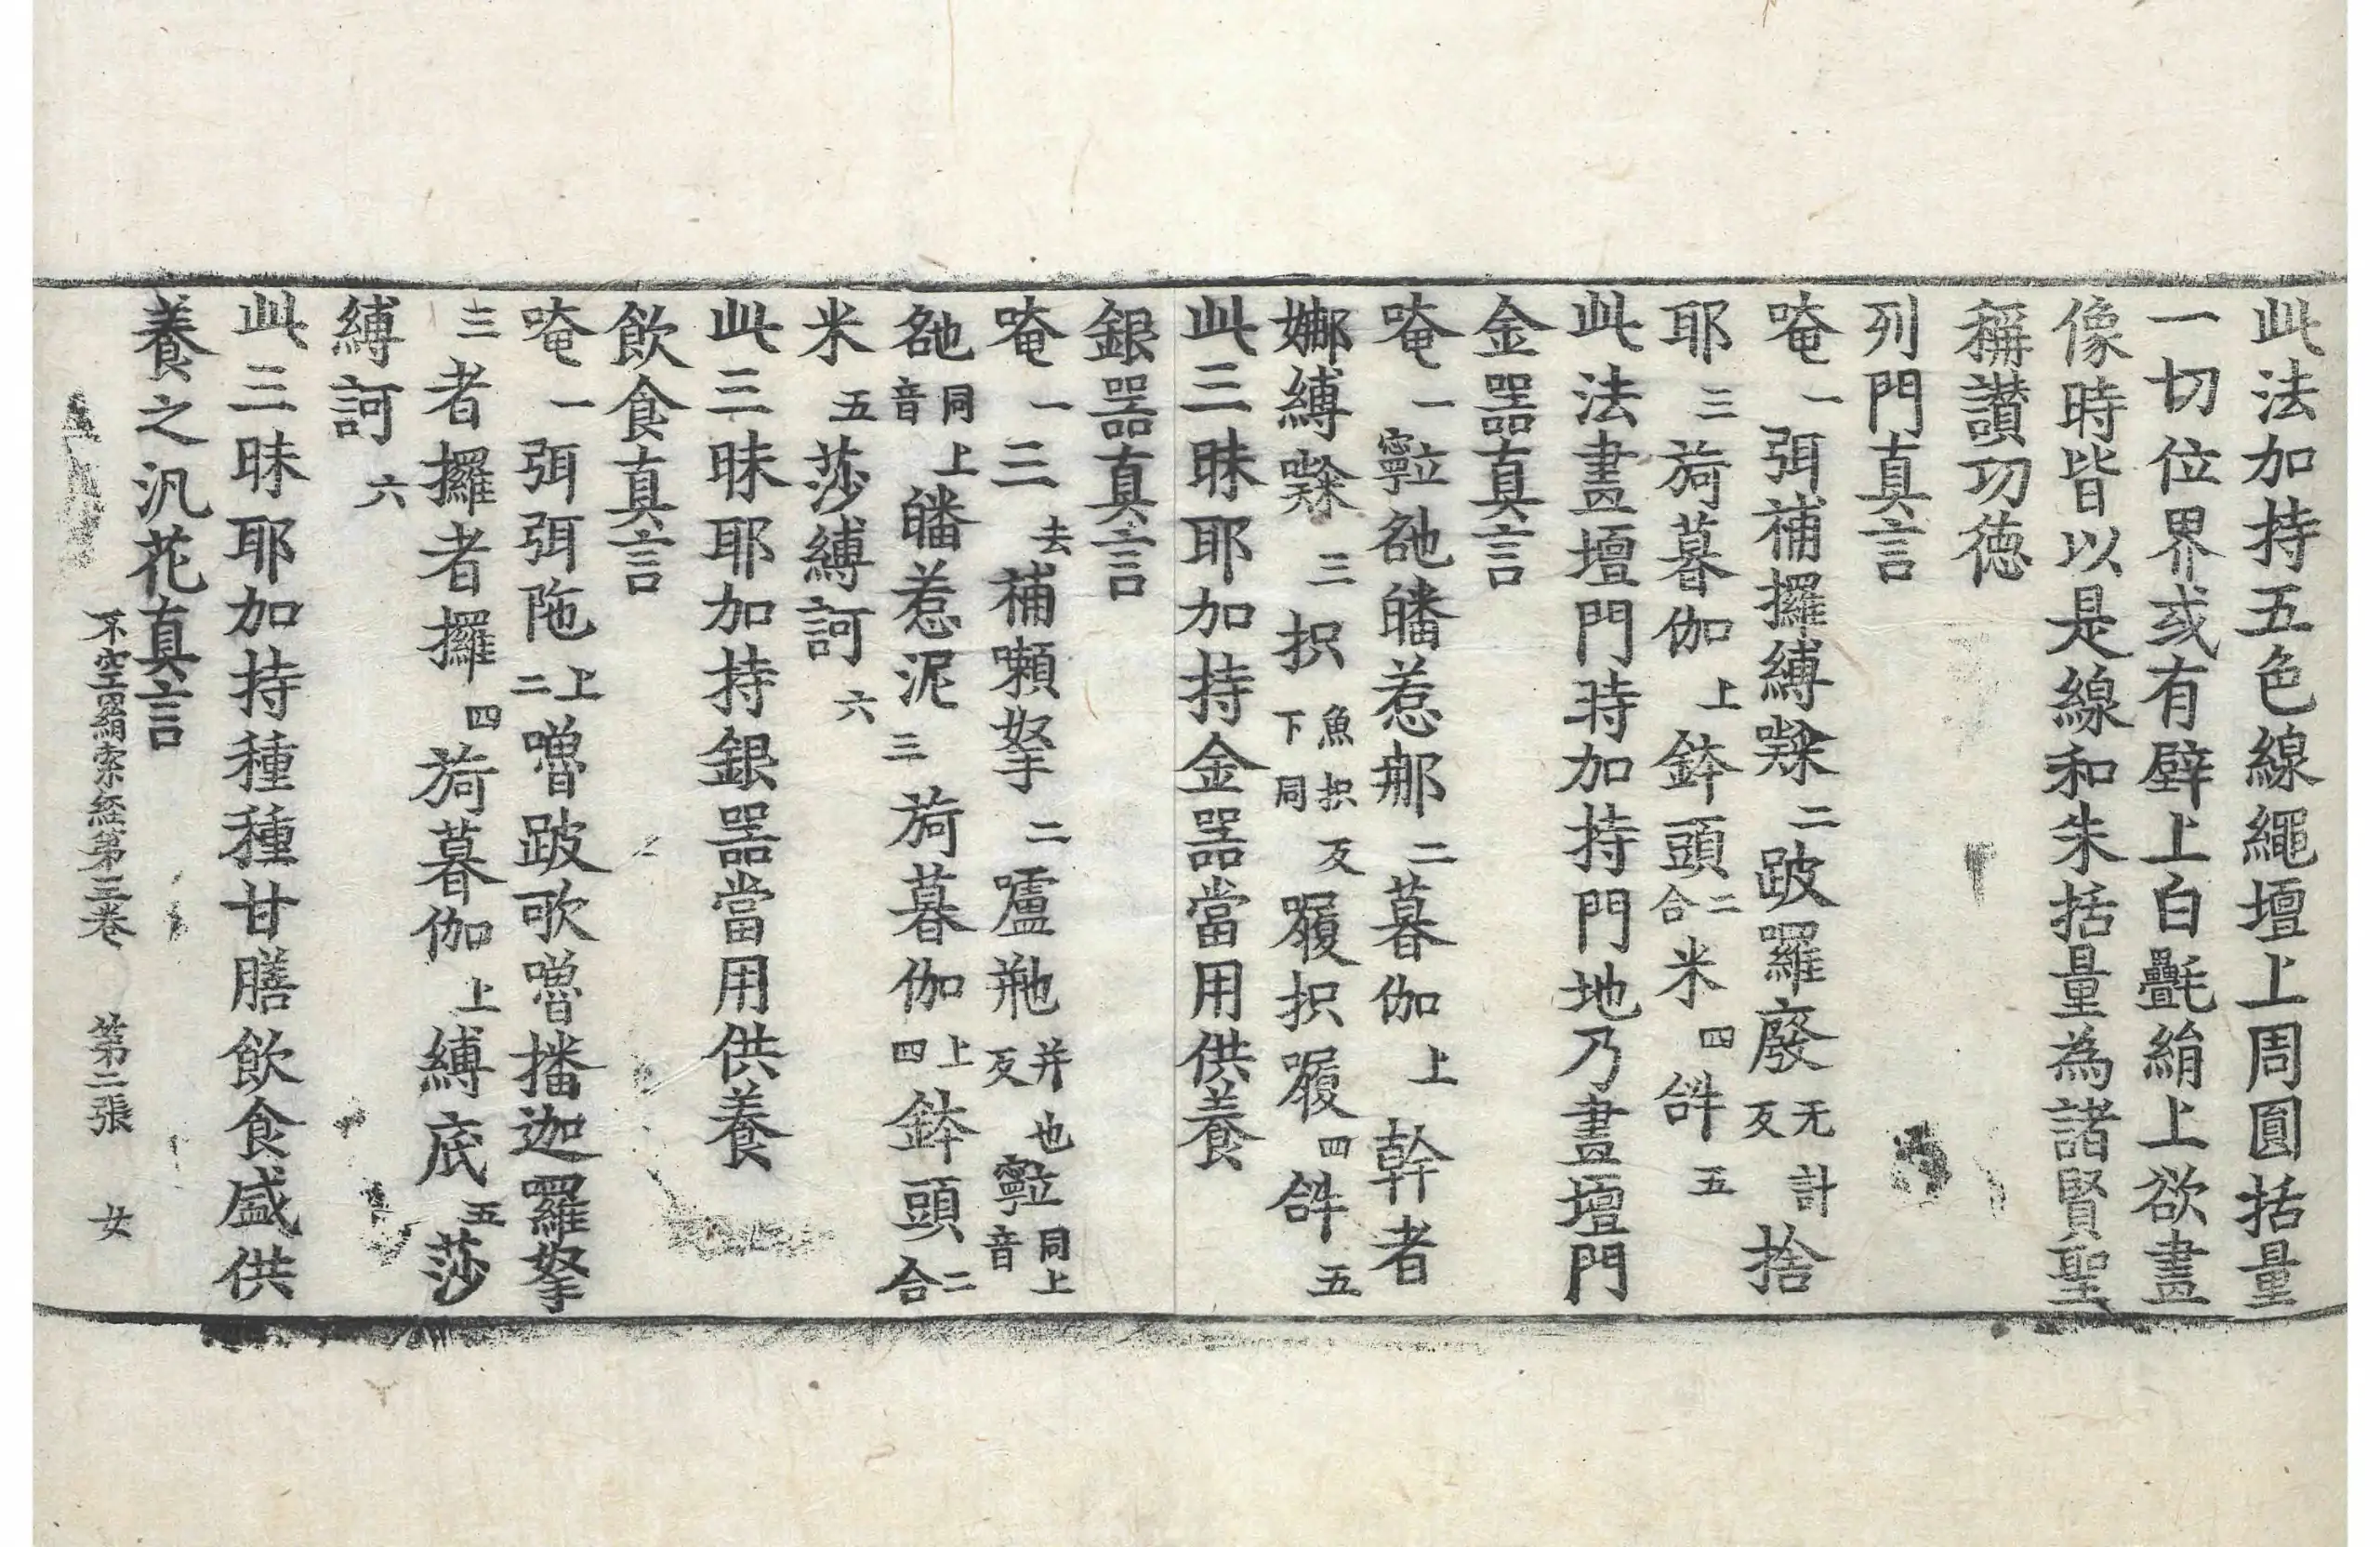 此法加持五色線繩壇上周圓括量
一切位界或有壁上白㲲絹上欲畫
像時皆以是線和朱括量為諸賢聖
稱讃功徳
列門真言
唵一弭補攞縛㗚二跛羅廢无計反捨
耶三旖暮伽上鉢頭二合米四𤙖五
此法畫壇門時加持門地乃畫壇門
金器真言
唵一𡫸䂐皤惹郍二暮伽上幹者
娜縛㗚三抧魚抧反下同履抧履四𤙖五
此三昧耶加持金器當用供養
銀器真言
唵一三去補嚬拏二嚧㼰并也反𡫸同上音
䂐同上音皤惹泥三旖暮伽上四鉢頭二合
米五莎縛訶六
此三昧耶加持銀器當用供養
飲食真言
唵一弭弭陁上二嚕跛歌嚕播迦羅拏
三者攞者攞四旖暮伽上縛底五莎
縛訶六
此三昧耶加持種種甘膳飲食盛供
養之汎花真言
不空羂索経第三卷 第二張 女